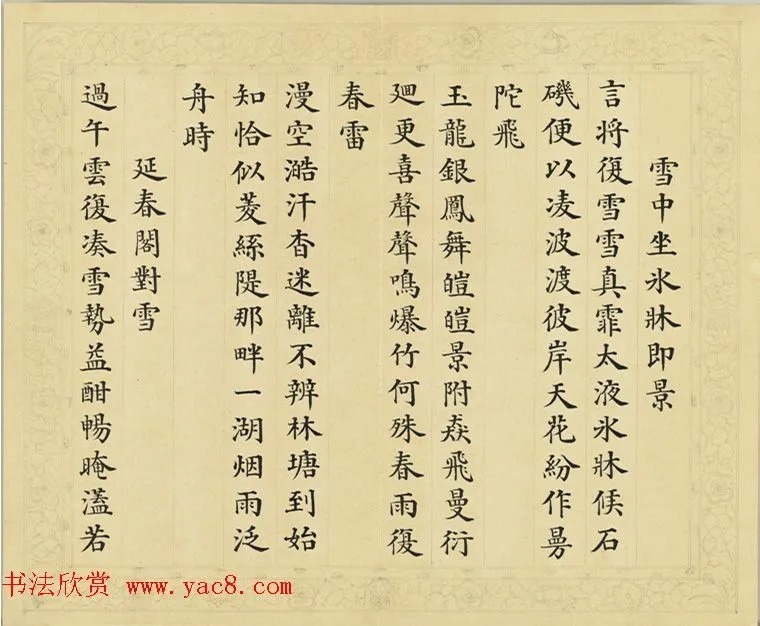 雪中坐氷牀即景
言将復雪雪真霏太液氷牀候石
磯便以凌波渡彼岸天花紛作曼
陀飛
玉龍銀鳳舞皚皚景附猋飛曼衍
廻更喜聲聲鳴爆竹何殊春雨復
春雷
漫空澔汗杳迷離不辨林塘到始
知恰似菱絲隄那畔一湖烟雨泛
舟時
延春閣對雪
過午雲復凑雪勢益酣暢晻濭若
书法欣赏 www.yac8.com